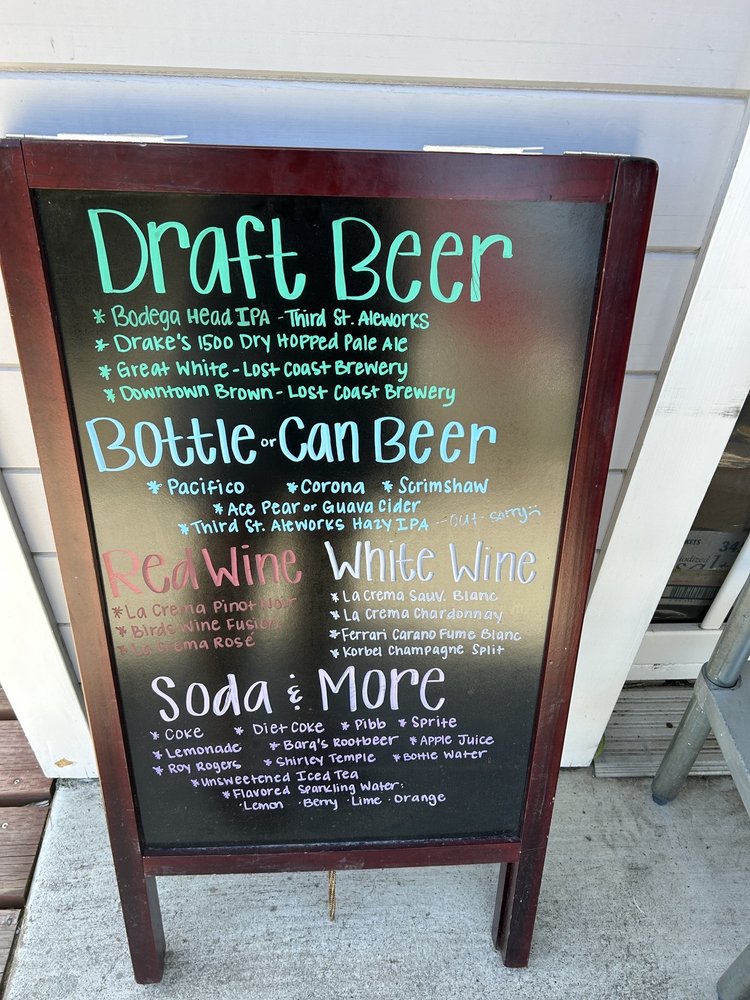 Draft Beer
* Bodega Head IPA - Third St. Aleworks
* Drake's 1500 Dry Hopped Pale Ale
* Great White - Lost Coast Brewery
* Downtown Brown - Lost Coast Brewery
Bottle or Can Beer
* Pacifico * Corona * Scrimshaw
* Ace Pear or Guava Cider
* Third St. Aleworks Hazy IPA - out - sorry :(
Red Wine
* La Crema Pinot Noir
* Birds Wine Fusion
* La Crema Rosé
White Wine
* La Crema Sauv. Blanc
* La Crema Chardonnay
* Ferrari Carano Fume Blanc
* Korbel Champagne Split
Soda & More
* Coke * Diet Coke * Pibb * Sprite
* Lemonade * Barq's Rootbeer * Apple Juice
* Roy Rogers * Shirley Temple * Bottle Water
* Unsweetened Iced Tea
* Flavored Sparkling Water:
· Lemon · Berry · Lime · Orange